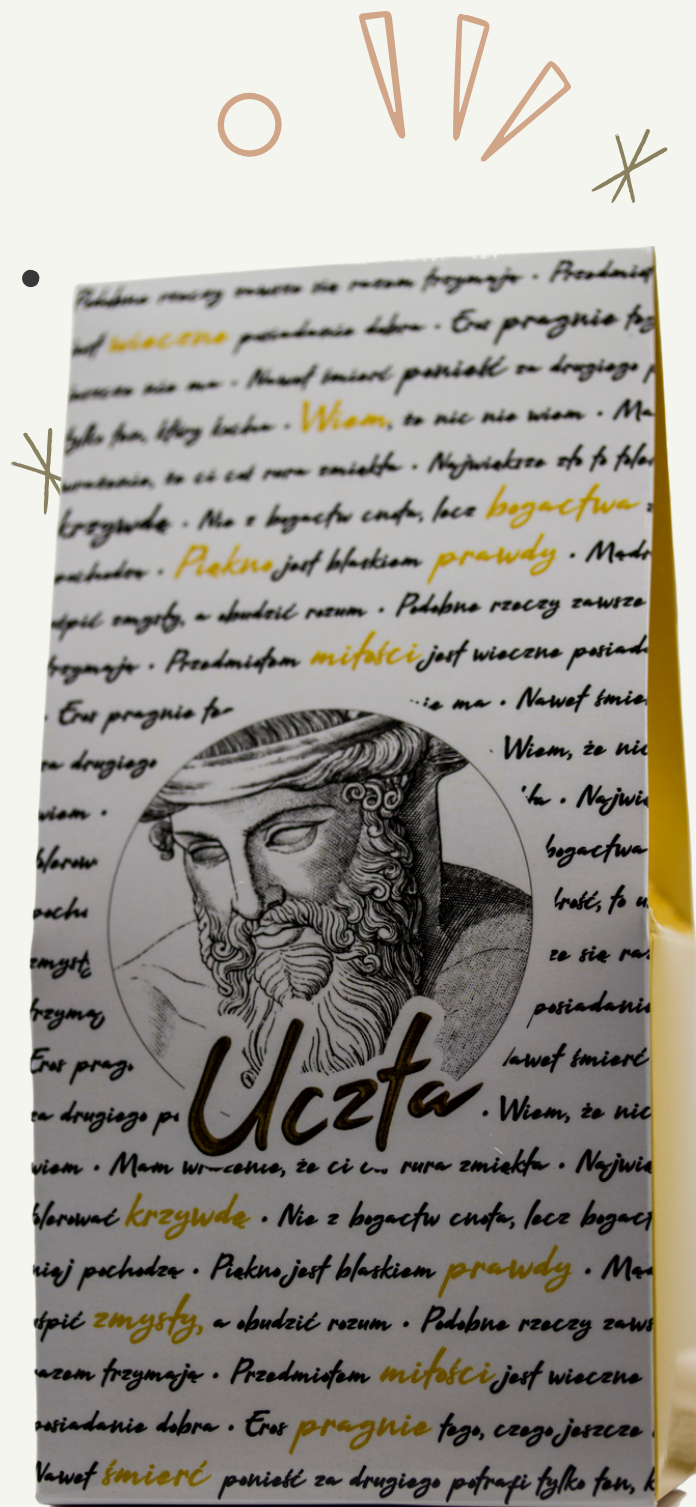 Podobne rzeczy zawsze się razem trzymają · Przedmiot
jest wieczne posiadanie dobra · Eros pragnie teg
jeszcze nie ma · Nawet śmierć ponieść za drugiego p
tylko ten, który kocha · Wiem, że nic nie wiem · Ma
wrażenie, że ci cał rura zmiękła · Największe zło to toler
krzywdę · Nie z bogactw cnota, lecz bogactwa z
pochodzą · Piękno jest blaskiem prawdy · Mądr
uśpić zmysły, a obudzić rozum · Podobne rzeczy zawsze
trzymają · Przedmiotem miłości jest wieczne posiad
· Eros pragnie te ie ma · Nawet śmie
za drugiego Wiem, że nic
wiem · kła · Najwię
olerow bogactwa
pocho rość, to u
zmysł ze się raz
trzyma posiadanie
Eros prag awet śmierć
za drugiego p · Wiem, że nic
Uczta
wiem · Mam wrażenie, że ci c rura zmiękła · Najwię
olerować krzywdę · Nie z bogactw cnota, lecz bogact
niej pochodzą · Piękno jest blaskiem prawdy · Mą
uśpić zmysły, a obudzić rozum · Podobne rzeczy zaws
razem trzymają · Przedmiotem miłości jest wieczne
posiadanie dobra · Eros pragnie tego, czego jeszcze
Nawet śmierć ponieść za drugiego potrafi tylko ten, k